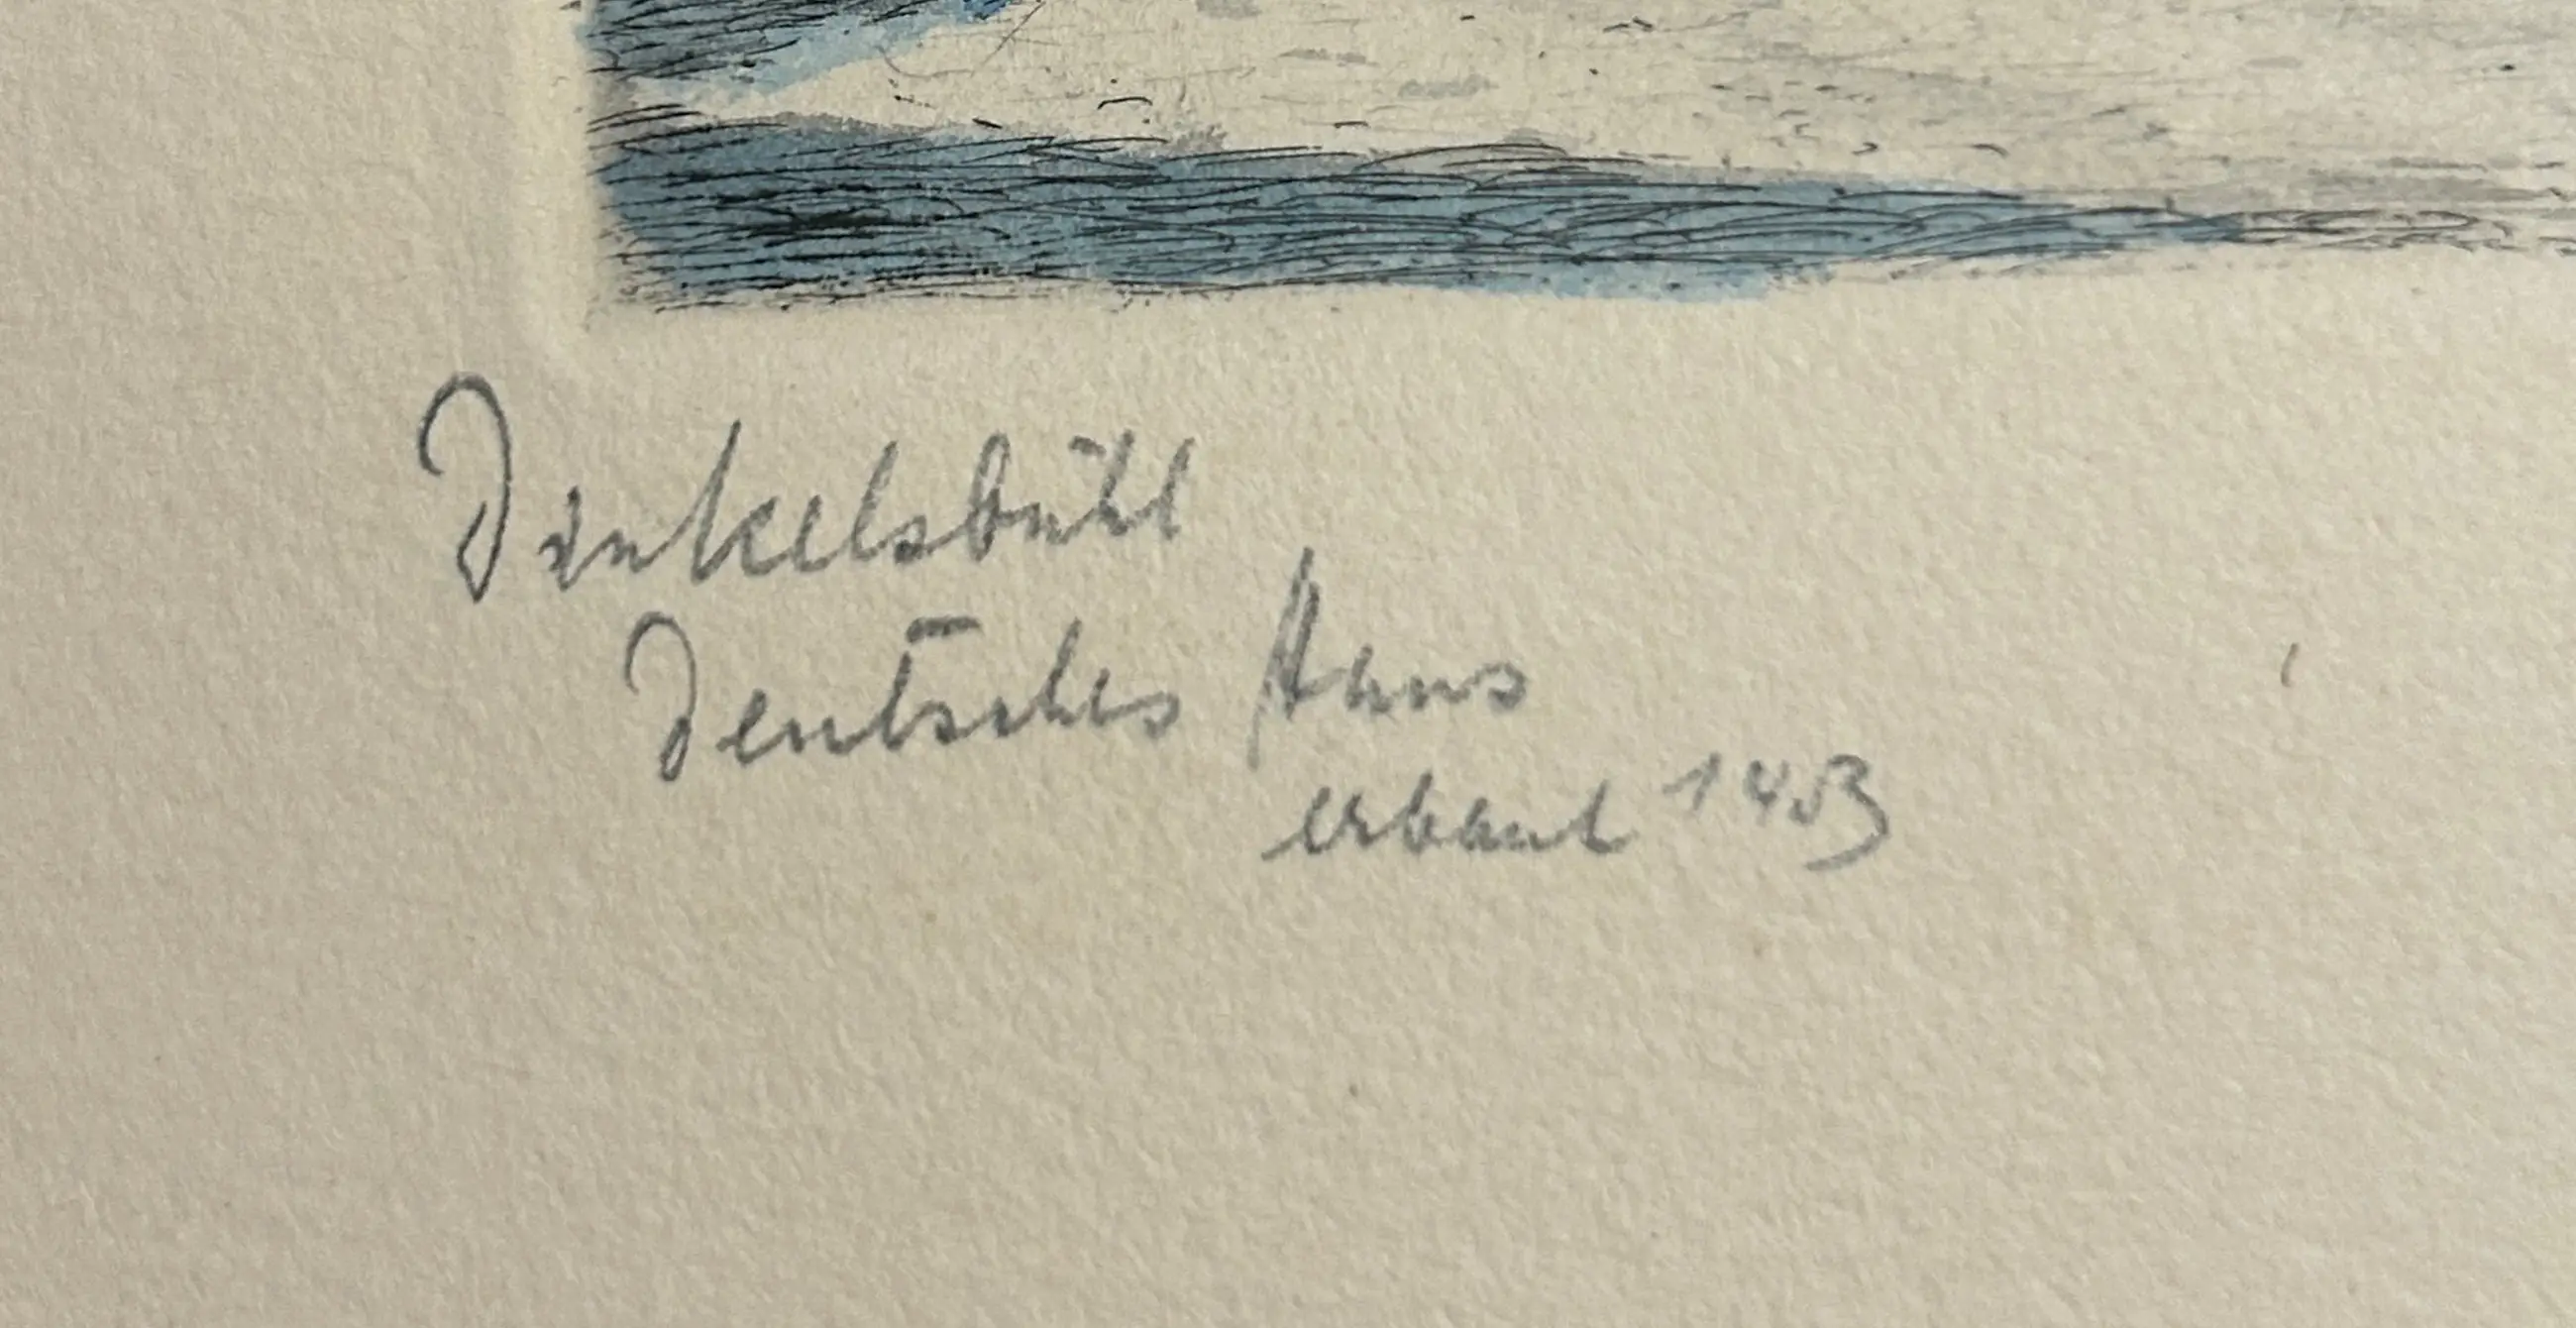 Dinkelsbühl
Deutsches Haus
erbaut 1453